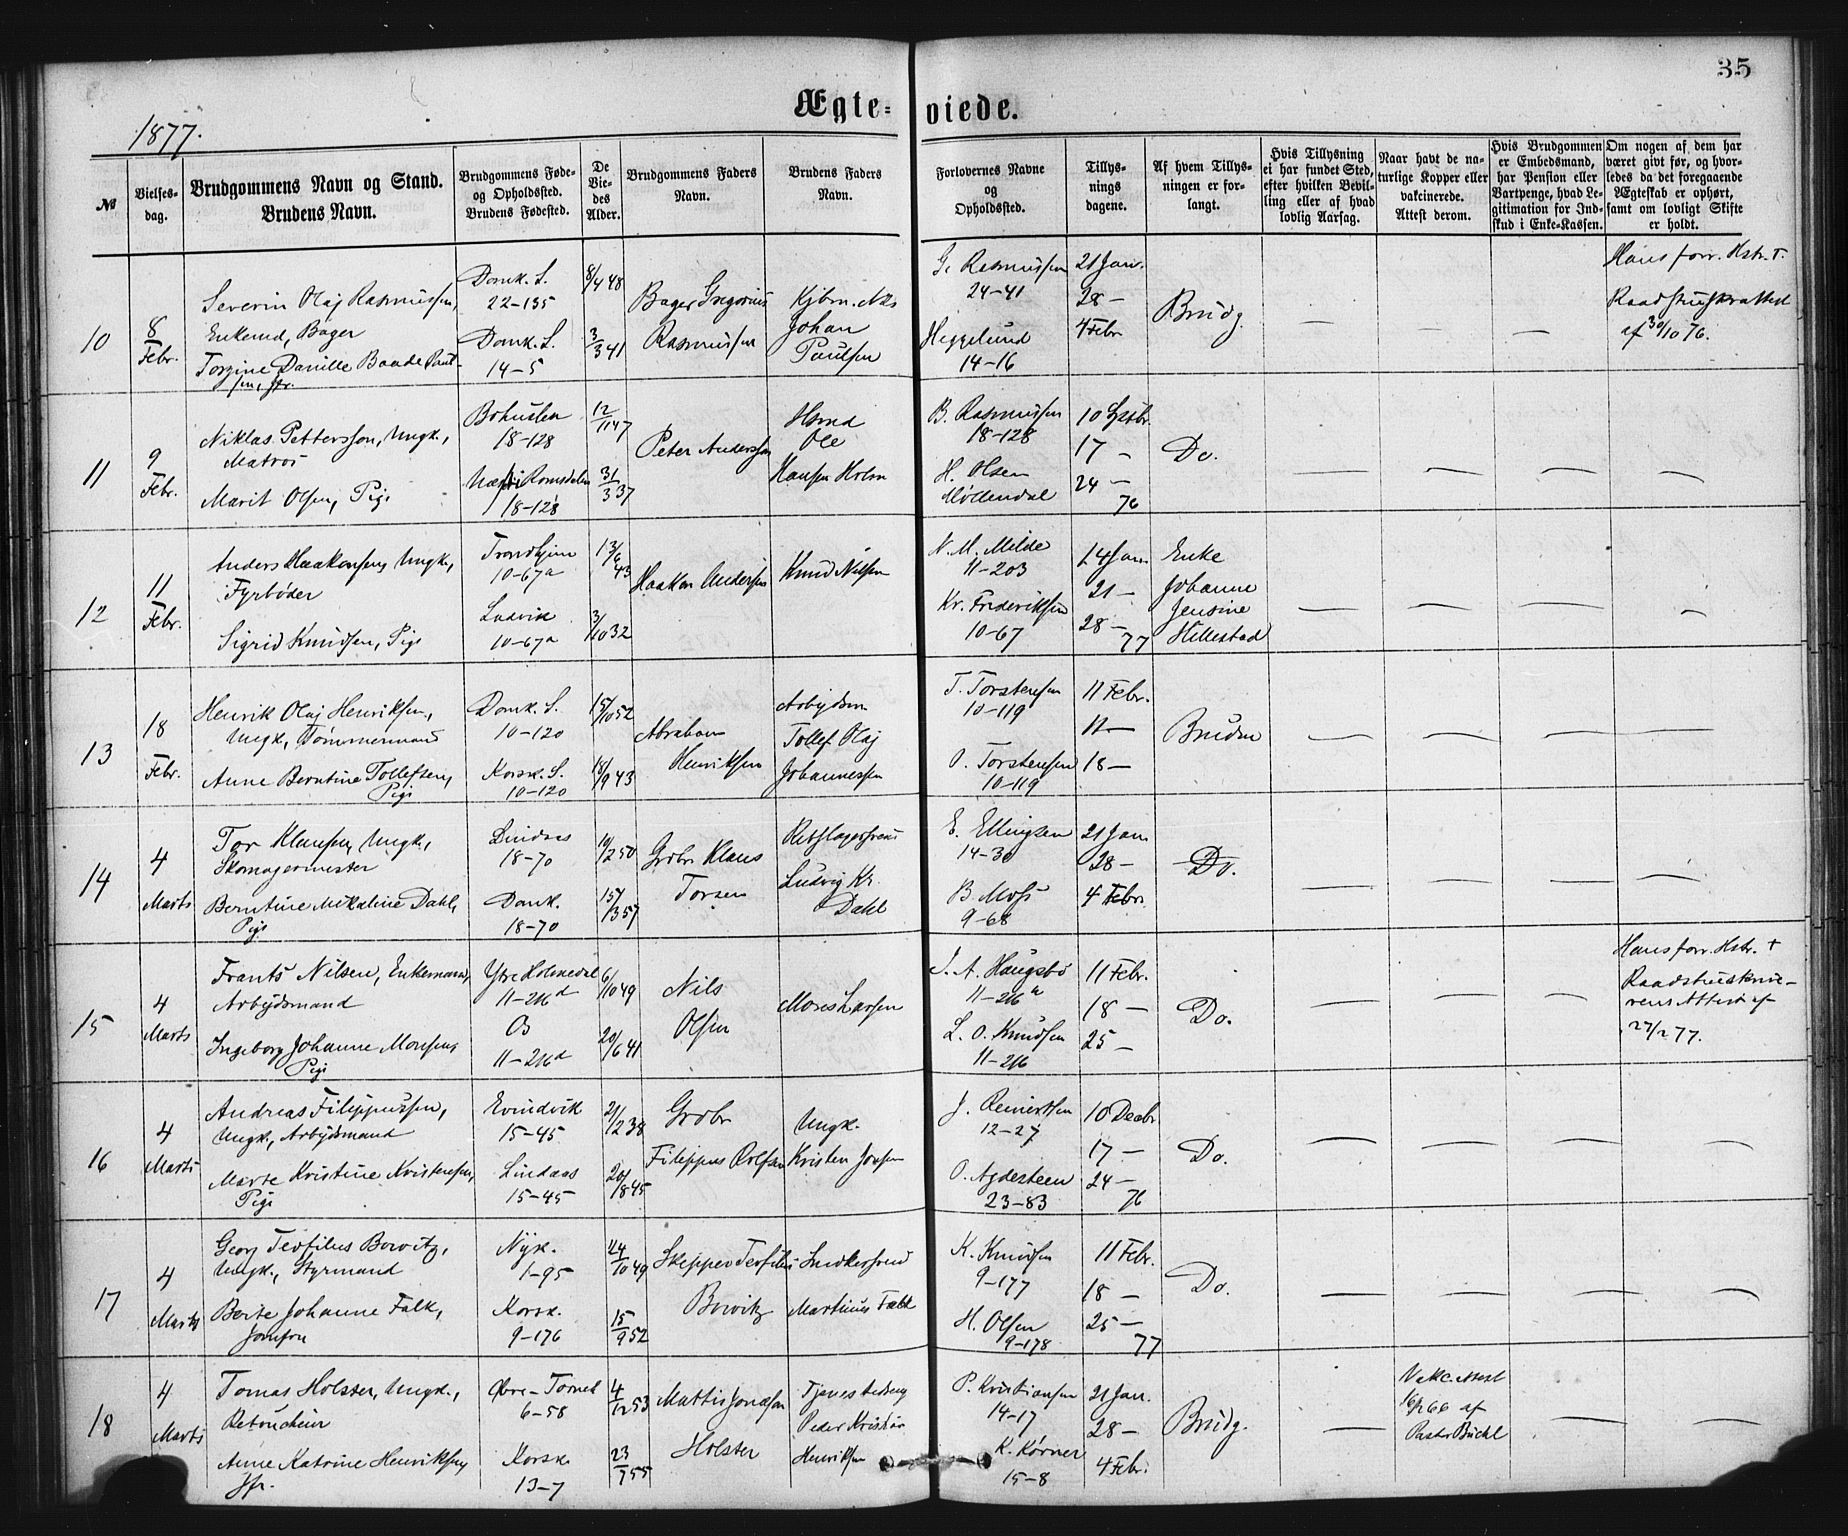 35
Ægte-viede.
1877.
№
Vielses-
dag.
Brudgommens Navn og Stand.
Brudens Navn.
Brudgommens Føde-
og Opholdssted.
Brudens Fødested.
De
Vie-
des
Alder.
Brudgommens Faders
Navn.
Brudens Faders
Navn.
Forlovernes Navne
og
Opholdssted.
Tillys-
nings
dagene.
Af hvem Tillys-
ningen er for-
langt.
Hvis Tillysning
ei har fundet Sted,
efter hvilken Bevil-
ling eller af hvad
lovlig Aarsag.
Naar havt de na-
turlige Kopper eller
vakcinerede.
Attest derom.
Hvis Brudgommen
er Embedsmand,
har Pension eller
Vartpenge, hvad Le-
gitimation for Ind-
skud i Enke-Kassen.
Om nogen af dem har
været givt før, og hvor-
ledes da det foregaaende
Ægteskab er ophørt,
samt om lovligt Skifte
er holdt.
10
8
Febr.
Severin Olaj Rasmussen,
Enkemd, Bager
Torgine Danille Baade Paul-
sen, Jfr.
Domk. S.
22-135
Domk. S.
14-5
8/4 48
3/3 41
Bager Gregorius
Rasmussen
Kjbm. Nils
Johan
Paulsen
G. Rasmussen
24-41
Heggelund
14-16
21 Jan.
28 —
4 Febr
Brudg.
—
—
—
Hans forr. Hstr. †.
Raadstuskr. attest
af 30/10 76.
11
9
Febr.
Niklas Pettersson, Ungk.,
Matros
Marit Olsen, Pige
Bohuslen
18-128
Romsdalen
18-128
12/11 47
31/3 37
Peter Andersson
Hsmd
Ole
Hansen Holm
B. Rasmussen
18-128
H. Olsen
Møllendal
10 Septbr.
17 —
24 —
76
Do.
—
—
—
—
12
11
Febr.
Anders Haakensen, Ungk.,
Fyrbøder
Sigrid Knudsen, Pige
Trondhjem
10-67a
Ladvik
10-67a
13/6 43
3/10 32
Haakon Andersen
Knud Nilsen
N. M. Milde
11-203
Kr. Frideriksen
10-67
14 Jan
21 —
28 —
77
Enke
Johanne
Jensine
Hillestad
—
—
—
—
13
18
Febr.
Henrik Olaj Henriksen,
Ungk., Tømmermand
Anne Berntine Tollefsen,
Pige
Domk. S.
10-120
Korsk. S.
10-120
15/10 52
18/9 43
Abraham
Henriksen
Arbejdsm
Tollef Olaj
Johannessen
T. Torstensen
10-119
O. Torstensen
10-119
11 Febr.
11 —
18 —
Bruden
—
—
—
—
14
4
Marts
Tor Klausen, Ungk.,
Skomagermester
Berntine Mikaline Dahl,
Pige
Lindaas
18-70
Domk.
18-70
10/2 50
15/3 57
Grdbr Klaus
Torsen
Rebslagersvend
Ludvig Kr.
Dahl
E. Ellingsen
14-30
B. Moss
9-68
21 Jan
28 —
4 Febr.
Do.
—
—
—
—
15
4
Marts
Frants Nilsen, Enkemand,
Arbejdsmand
Ingeborg Johanne Monsen,
Pige
Ytre Holmedal
11-216d
Os
11-216d
6/10 49
20/6 41
Nils
Olsen
Mons Larsen
J. A. Haugsbø
11-216a
L. O. Knudsen
11-216
11 Febr.
18 —
25 —
Do.
—
—
—
Hans forr. Hstr. †
Raadstueskrive-
rens Attest af
27/2 77.
16
4
Marts
Andreas Filippussen,
Ungk., Arbejdsmand
Marte Kristine Kristensen,
Pige
Evindvik
15-45
Lindaas
15-45
21/2 38
20/8 45
Grdbr
Filippus Rolfsen
Ungk.
Kristen Jonsen
J. Reinertsen
12-27
O. Agdesteen
23-83
10 Decbr
17 —
24 —
76
Do.
—
—
—
—
17
4
Marts
Georg Teofilus Bowitz,
Ungk., Styrmand
Berte Johanne Falk,
Jomfru
Nyk.
1-95
Korsk.
9-176
24/10 49
15/9 52
Skipper Teofilus
Bowitz
Snedkersvend
Martinus Falk
K. Knudsen
9-177
H. Olsen
9-178
11 Febr.
18 —
25 —
77
Do.
—
—
—
—
18
4
Marts
Tomas Holster, Ungk.,
Retoucheur
Anne Katrine Henriksen,
Jfr.
Øvre-Torned
6-58
Korsk.
13-7
4/12 53
23/7 55
Mattis Jonassen
Holster
Peder Kristian
Henriksen
P. Kristiansen
14-17
K. Kørner
15-8
21 Jan.
28 —
4 Febr.
Brudg.
—
Vakc. attest
af
Pastor Buchl
—
—